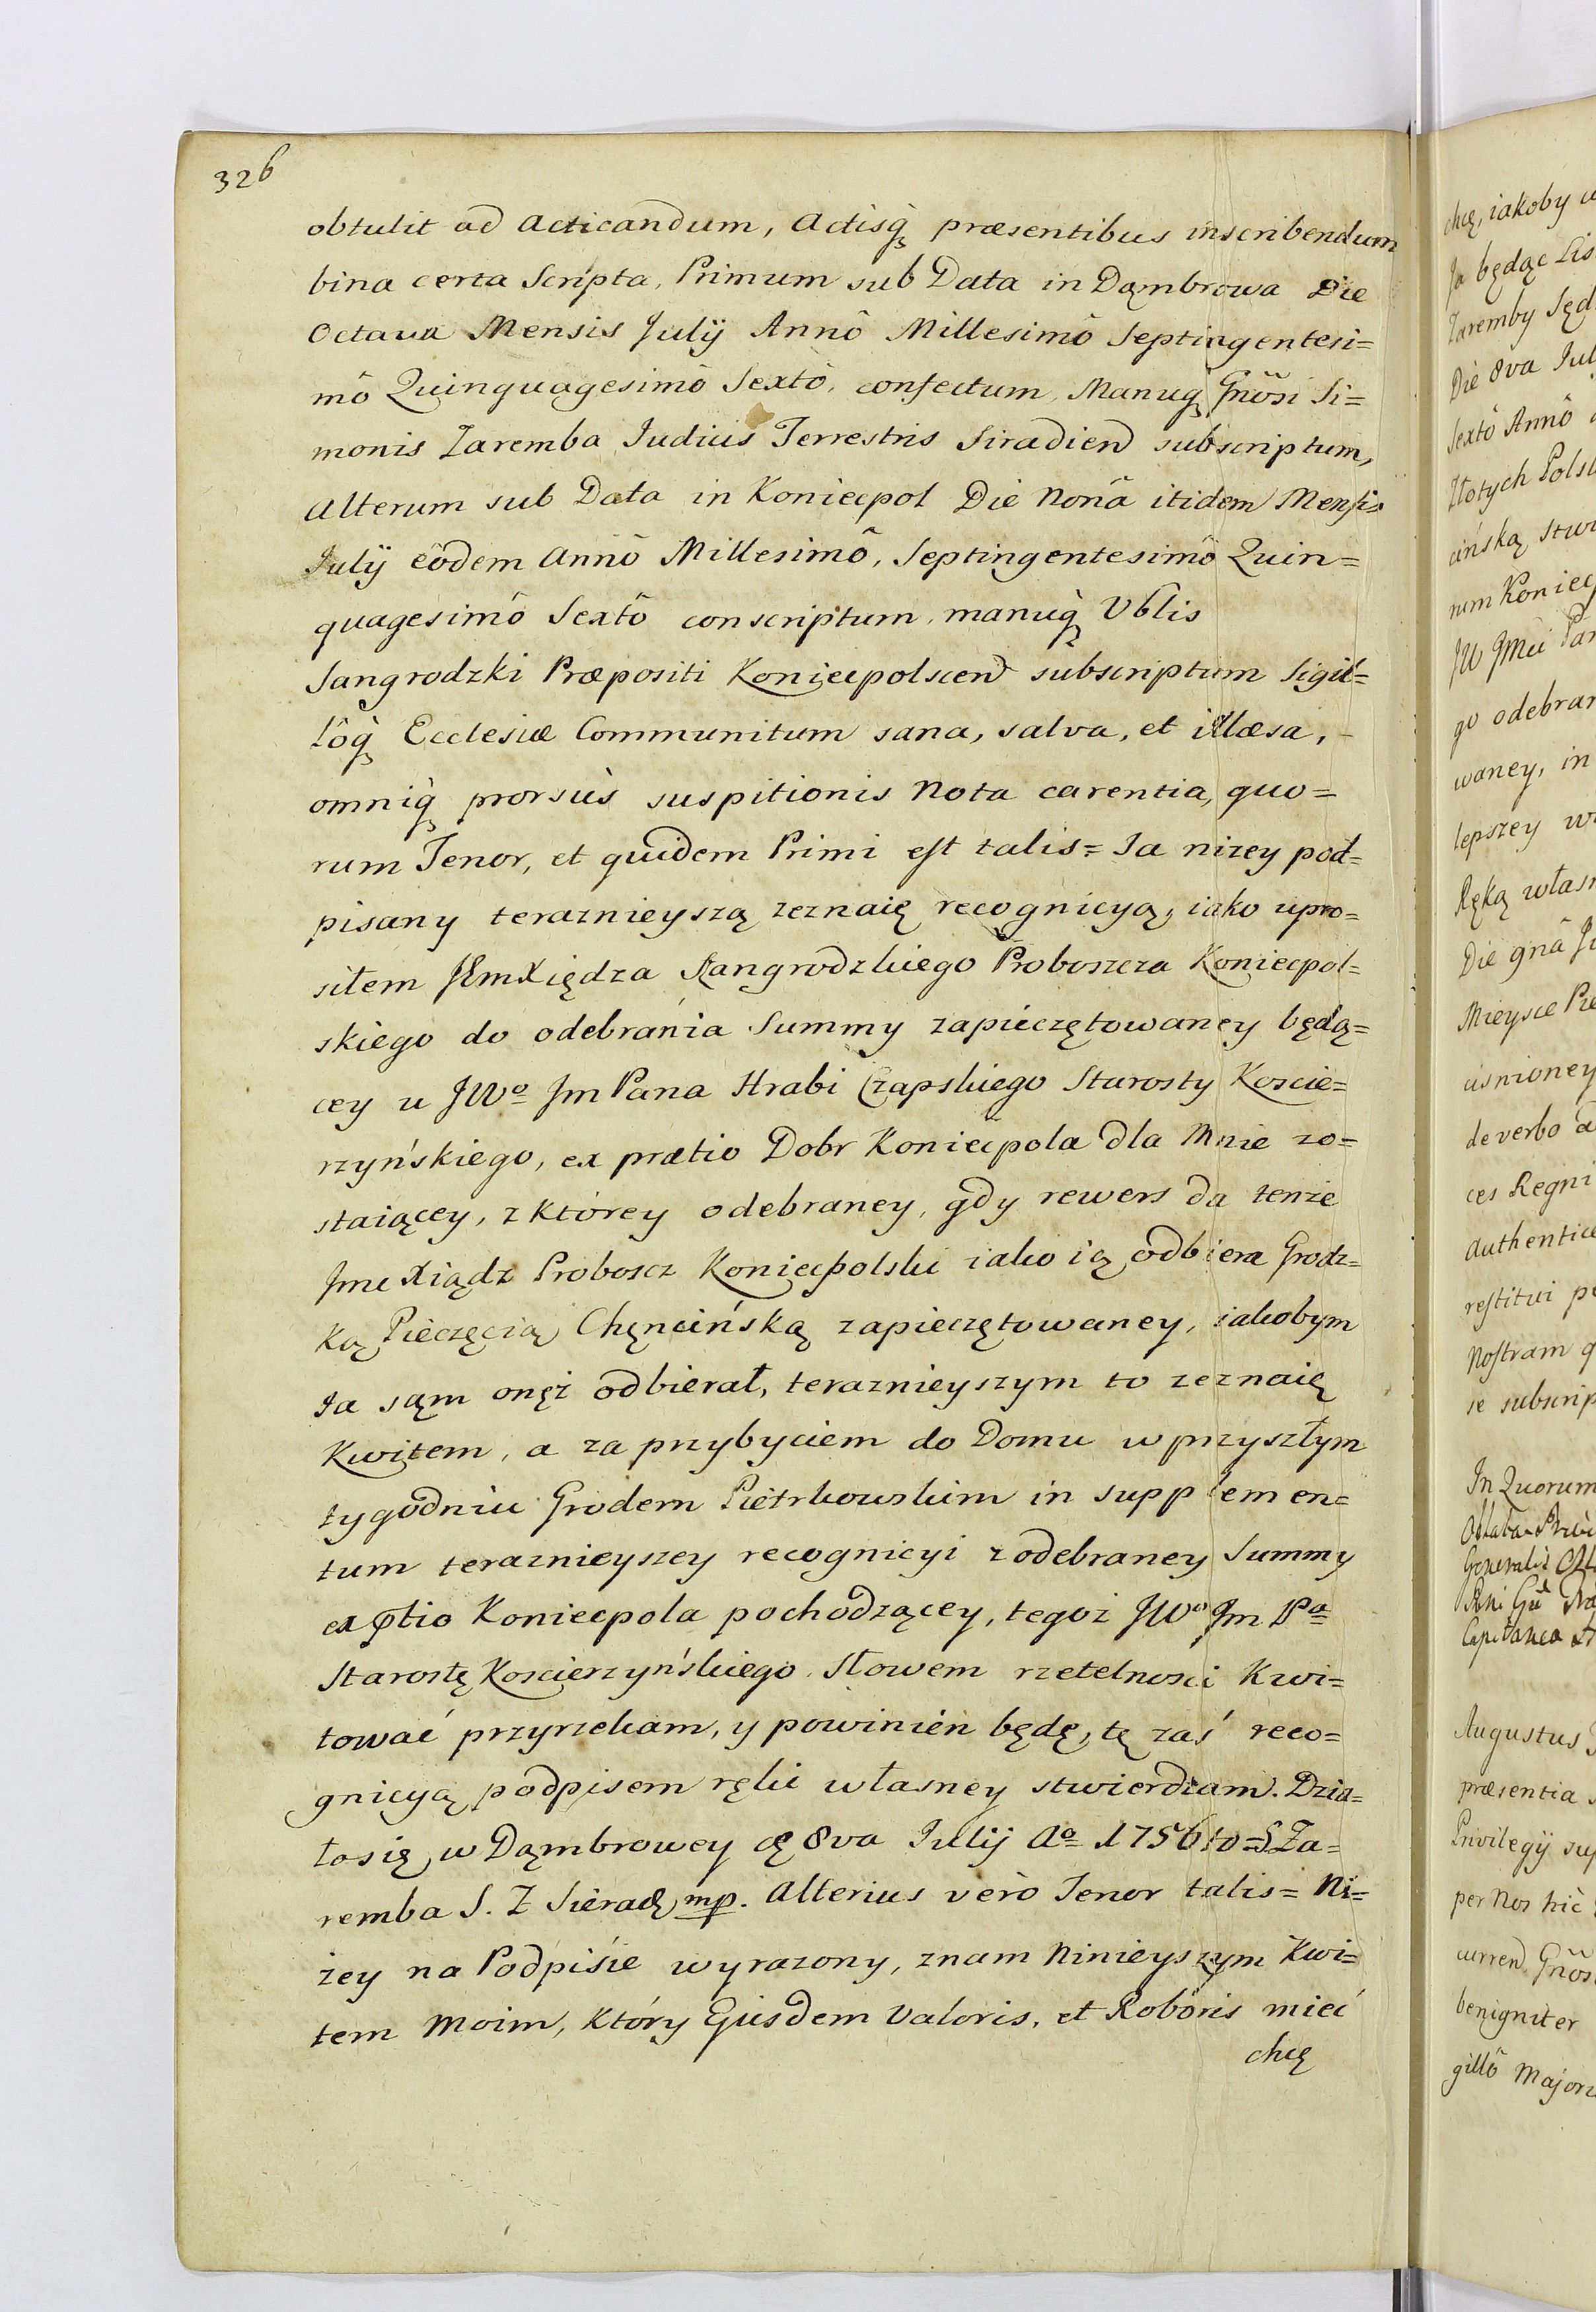 326
obtulit ad acticandum, actisq̀ præsentibus inscribendum
bina certa Scripta, Primum sub Data in Dąmbrowa Die
Octava Mensis Julij Annô Millesimô Septingentesi=
mô Quinquagesimô Sextô, confectum, Manuq̀ Gnõsi Si=
monis Zaremba Judicis Terrestris Siradien subscriptum,
Alterum sub Data in Koniecpol Die Nonâ itidem Mensis
Julij eôdem Annô Millesimô, Septingentesimô Quin=
quagesimô Sextô conscriptum, manuq̀ Vblis
Sangrodzki Præpositi Koniecpolscen subscriptum Sigil=
lôq̀ Ecclesiæ Communitum sana, salva, et illæsa,
omniq̀ prorsùs suspitionis Nota carentia, quo=
rum Tenor, et quidem Primi est talis = Ja niżey pod=
pisany teraznieyszą zeznaię recognicyą, iako upro=
siłem JEmXiędza Sangrodzkiego Proboszcza Koniecpol=
skiego do odebrania Summy zapieczętowaney będą=
cey u JWo Jm Pana Hrabi Czapskiego Starosty Koscie=
rzyńskiego, ex prætio Dobr Koniecpola dla Mnie zo=
staiącey, z którey odebraney, gdy rewers da tenże
Jmc Xiądz Proboscz Koniecpolski iako ią odbiera Grodz=
ką Pieczęcią Chęncińską zapieczętowaney, iakobym
Ja sąm onęż odbierał, teraznieyszym to zeznaię
Kwitem, a za przybyciem do Domu w przyszłym
tygodniu Grodem Pietrkowskim in supplemen=
tum teraznieyszey recognicyi z odebraney Summy
ex ptio Koniecpola pochodzącey, tegoż JWo Jm Pa
Starostę Koscierzyńskiego, Słowem rzetelnosci Kwi=
tować przyrzekam, y powinien będę, tę zaś reco=
gnicyą podpisem ręki własney stwierdzam. Dzia=
łosię w Dąmbrowey d 8va Julij Ao 1756to = S. Za=
remba S. Z Sierad mp. Alterius verò Tenor talis = Ni=
żey na Podpisie wyrazony, znam Ninieyszym Kwi=
tem Moim, który Ejusdem Valoris, et Roboris mieć
chcę
chcę, iakoby
Ja będąc
Zaremby Sęd
Die 8va Jul
Sextô Annô
Złotych Pols
cińską
num Koniec
JW JMci Pan
go odebra
waney, in
lepszey
Ręką włas
Die 9nâ
Mieysce
cisnioney
de verbo
ces Regni
Authentice
restitui
Nostram
se subscrip
In Quorum
Oblata
Generalis
Capitanea
Augustus
præsentia
Privilegij
per Nos hic
curren Gnõs
benigniter
gillô Majori